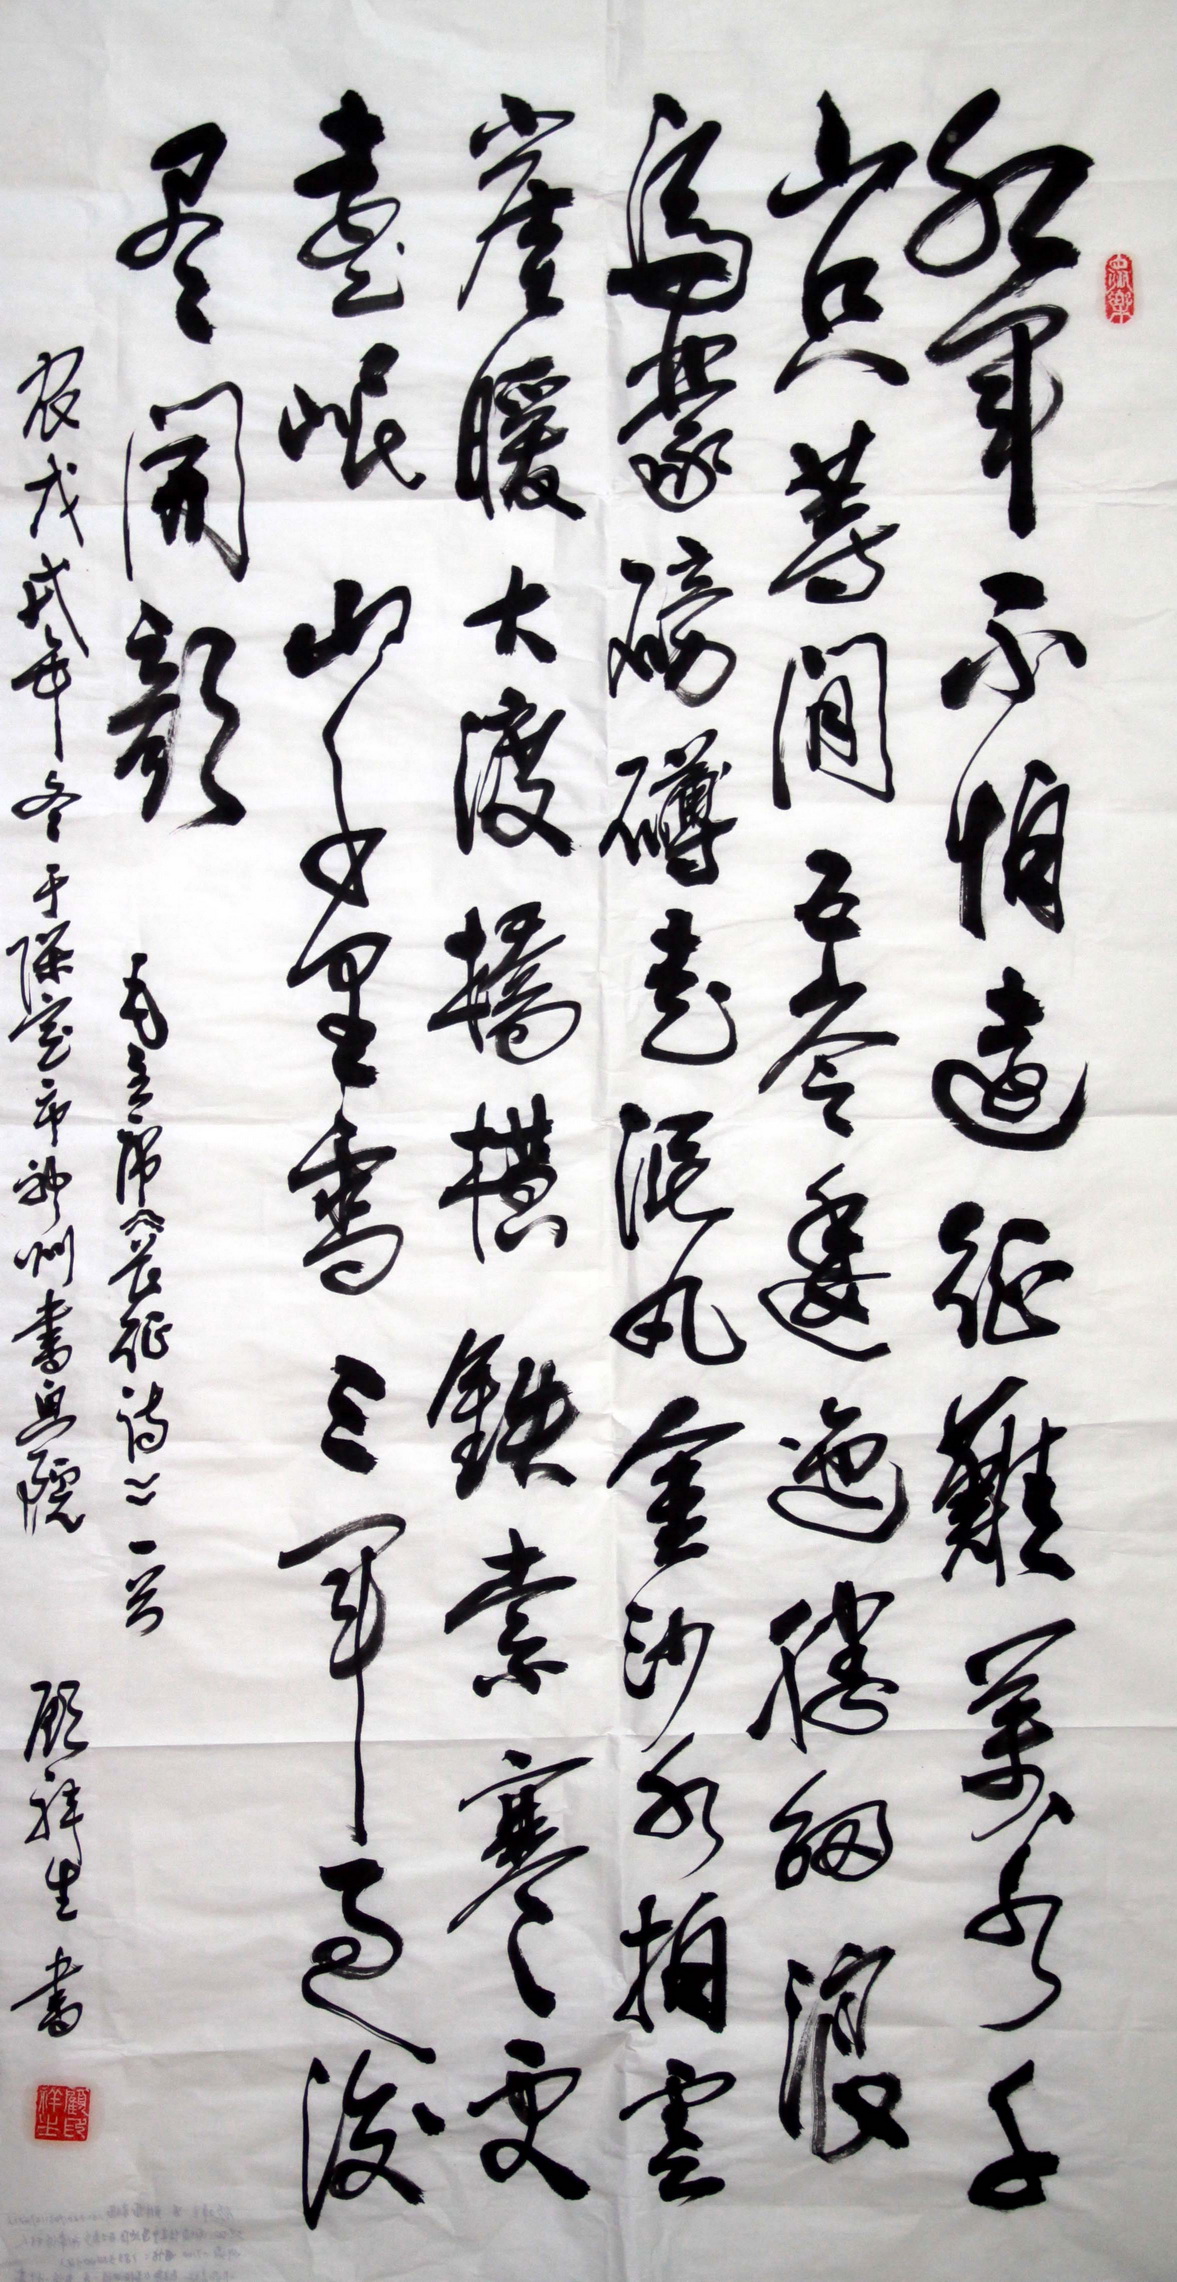 红軍不怕遠征難萬水千
山只等閒五岺逶迤騰細浪
烏蒙磅礴走泥丸金沙水拍雲
崖暖大渡橋横鐵索寒更
喜岷山千里雪三軍過後
尽開顏
毛主席《長征詩》一首
农戊戌年冬于市神州書画院 顾祥生書
顧印祥生